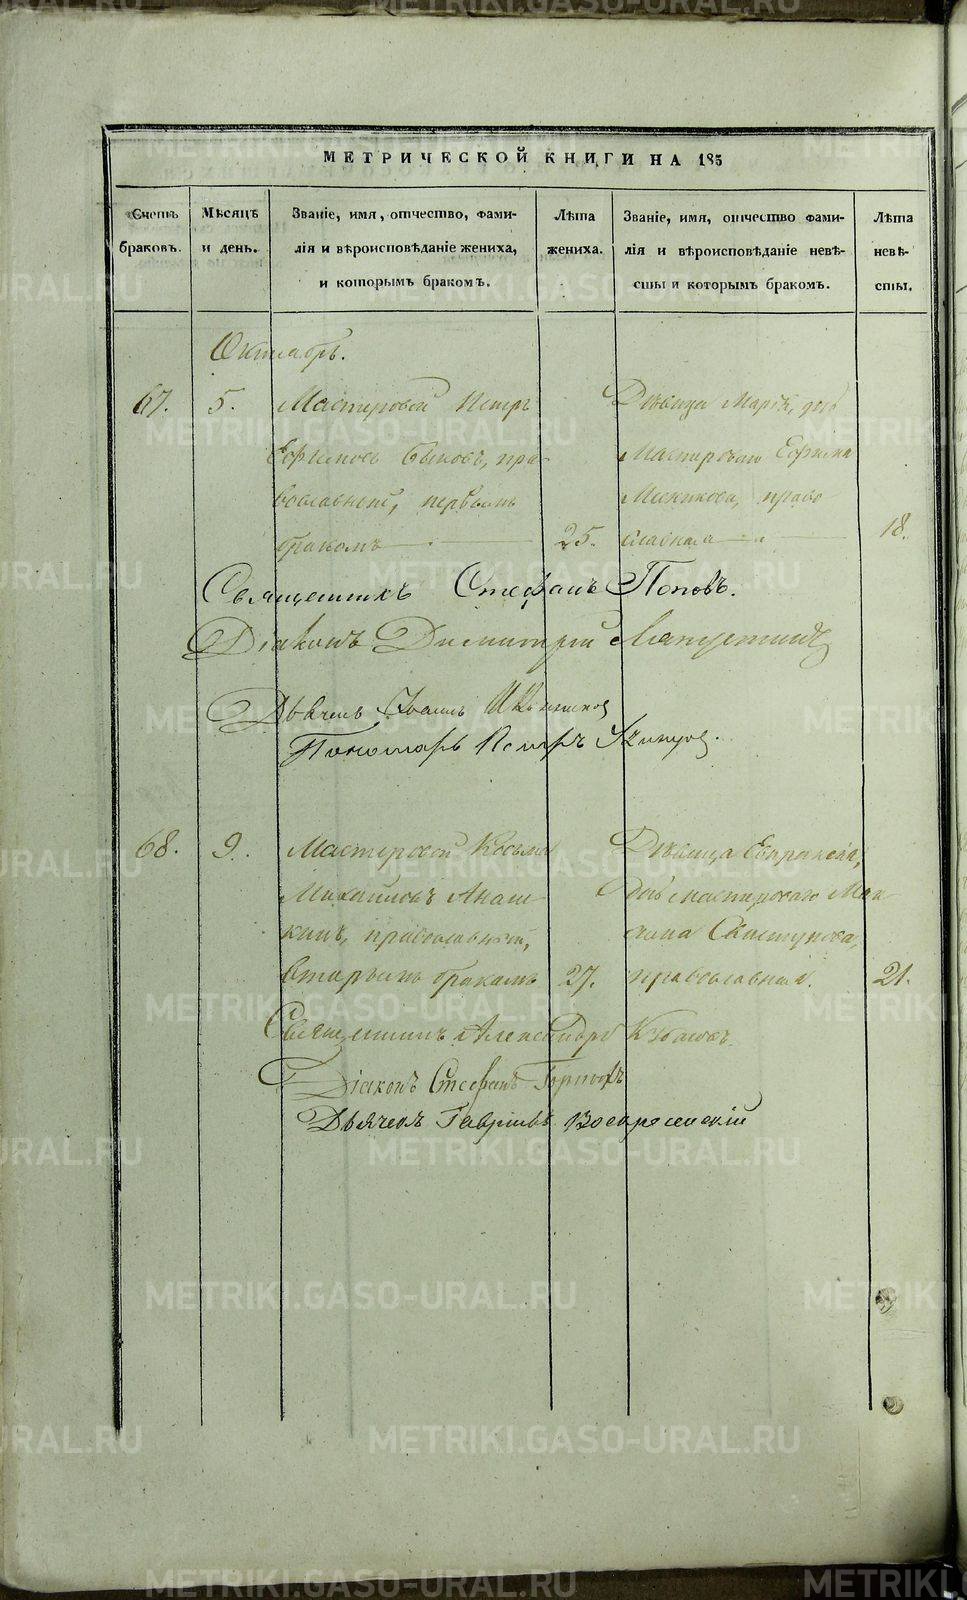 МЕТРИЧЕСКОЙ КНИГИ НА 185
Счетъ браковъ.
Мѣсяцъ и день.
Званіе, имя, отчество, фами-
лія и вѣроисповѣданіе жениха,
и которымъ бракомъ.
Лѣта жениха.
Званіе, имя, отчество фами-
лія и вѣроисповѣданіе невѣ-
сты и которымъ бракомъ.
Лѣта невѣ-
сты.
Октябрь.
67. 5. Мастеровой Петръ
Ефимовъ Быковъ, пра-
вославный, первымъ
бракомъ 25.
Дѣвица Марія, дочь
Мастероваго Ефима
православная 18.
Священникъ Стефанъ Поповъ.
Діаконъ Димитрій Лапустинъ
Дьячекъ Іоаннъ
Пономарь Петръ
68. 9. Мастеровой Косьма
Михайловъ
православный,
вторымъ бракомъ 27.
Дѣвица
дочь мастероваго Мак-
сима
православная. 21.
Священникъ Александръ
Діаконъ Стефанъ
Дьячекъ Гавріилъ Воскресенскій
METRIKI.GASO-URAL.RU